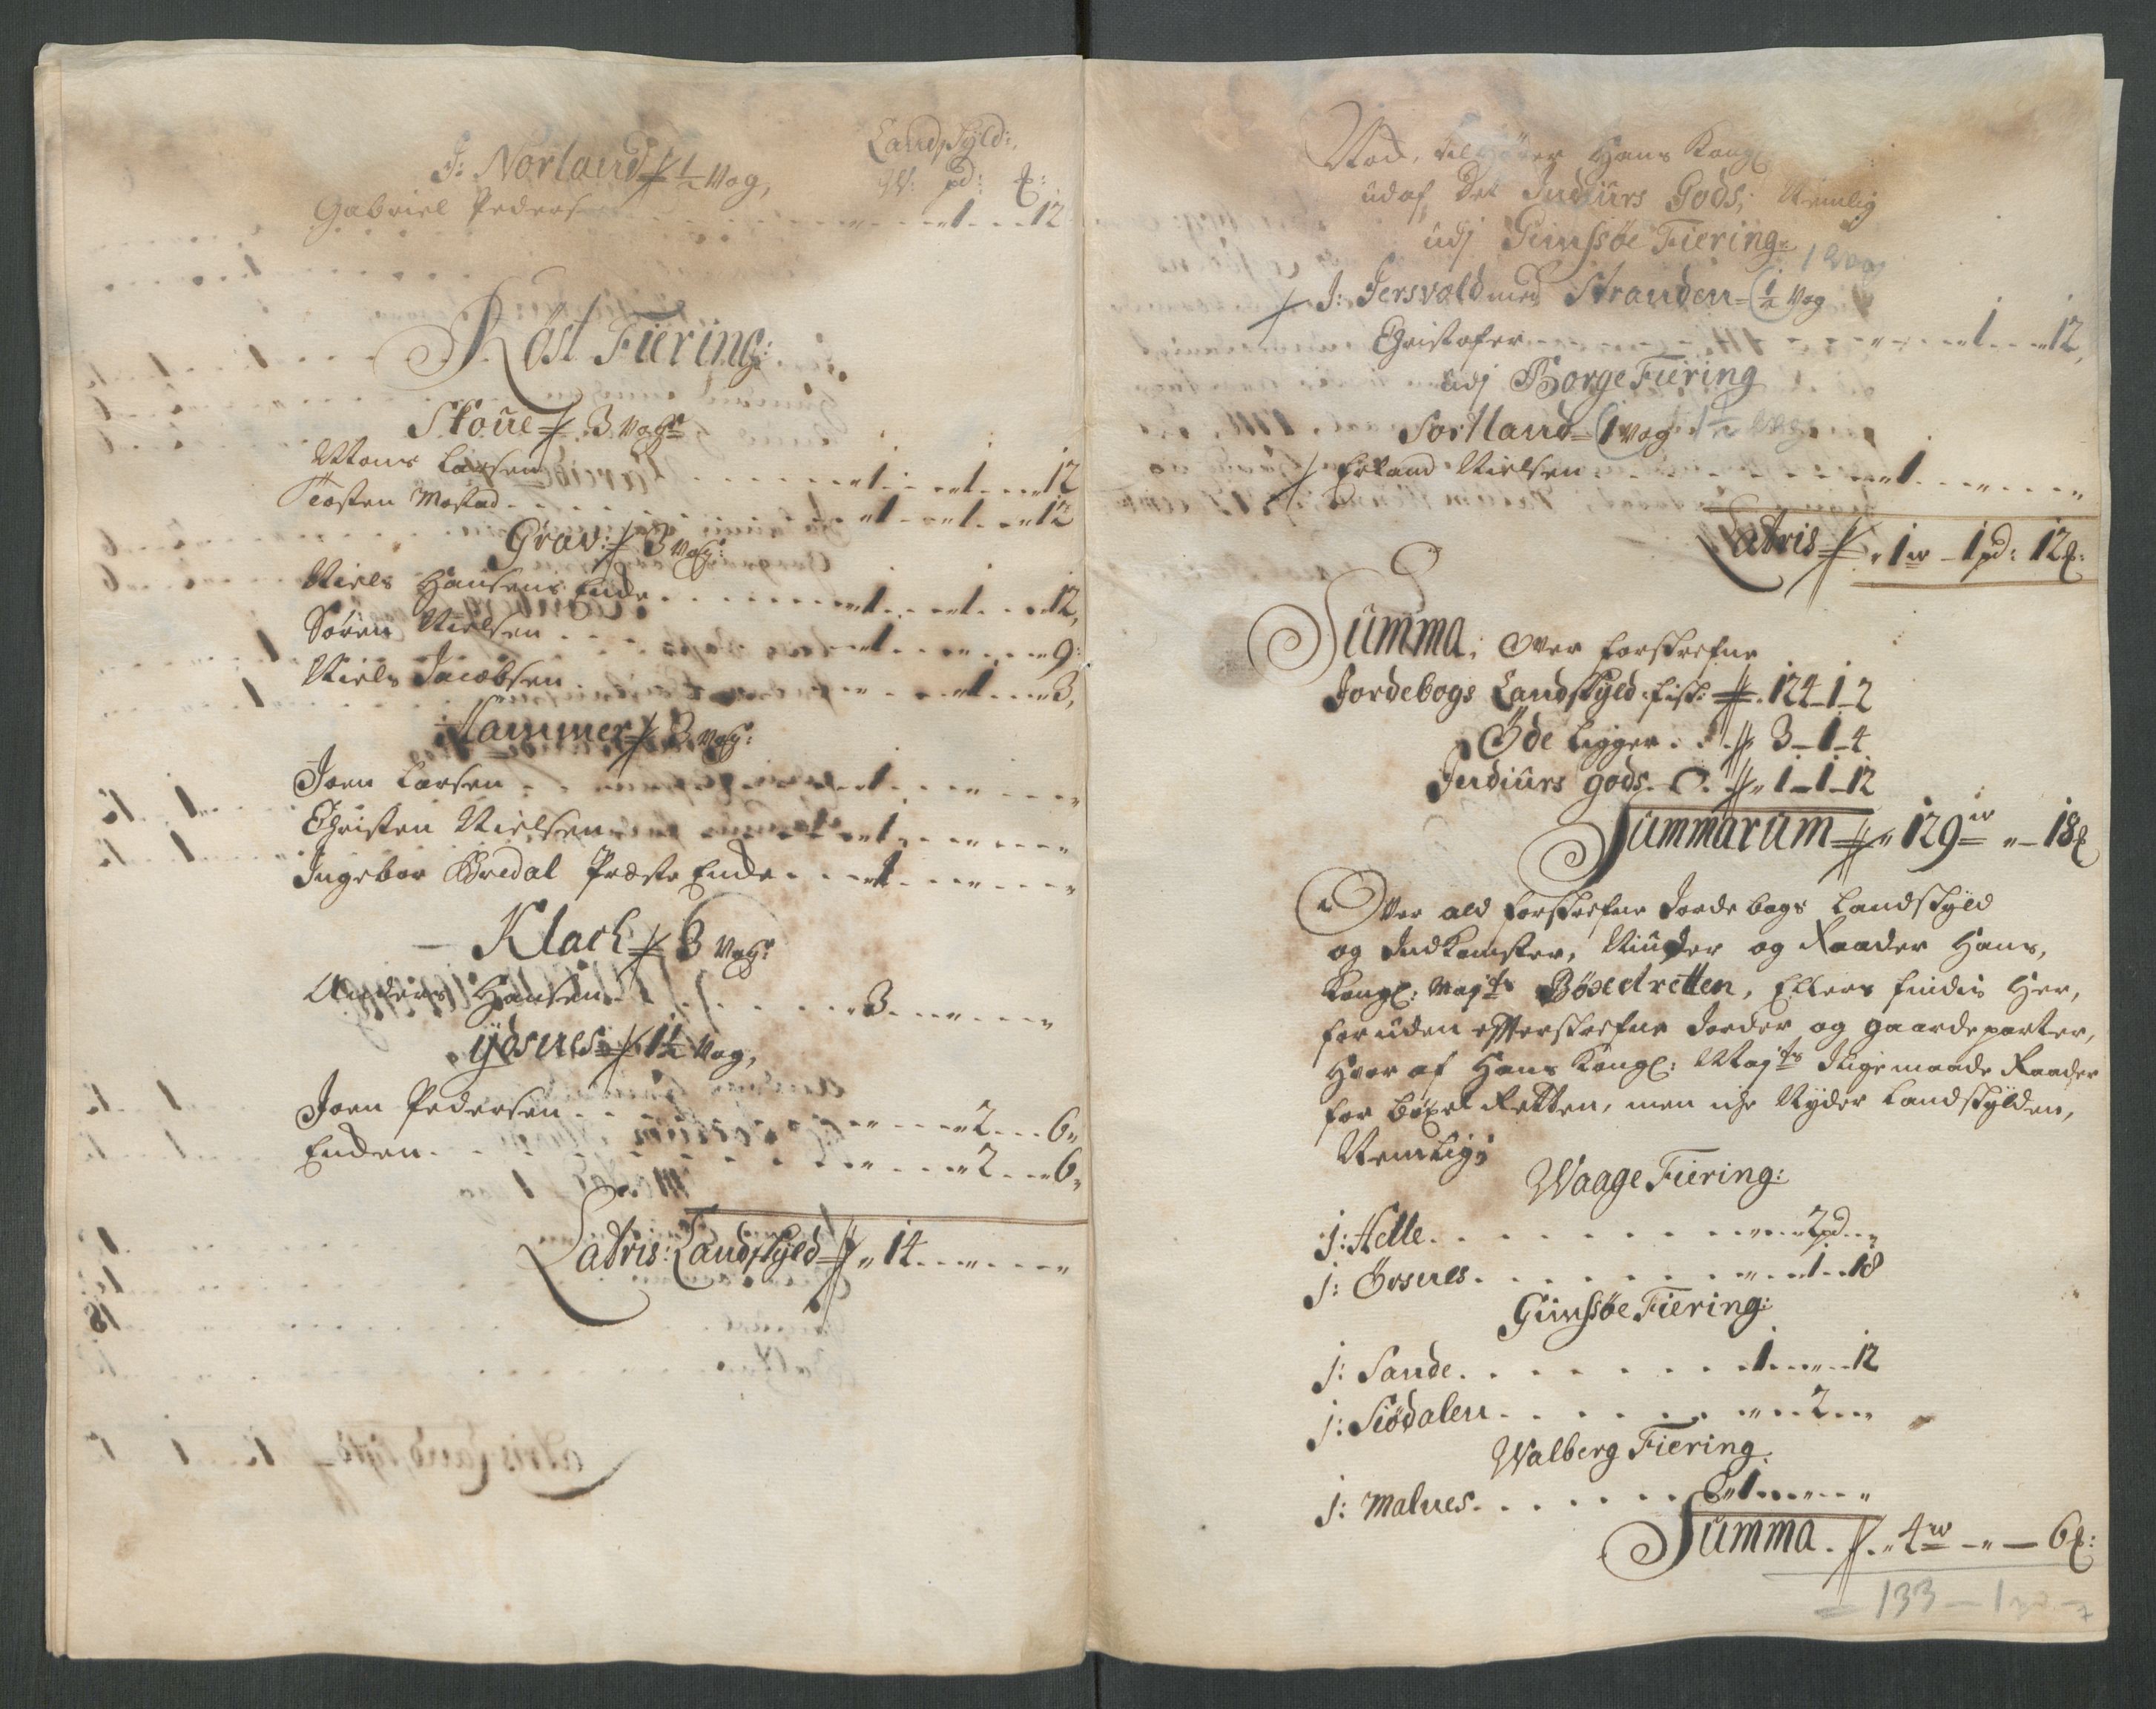 Landskyld:
J: Norland ½ Vog,
W: pd: ℔:
Gabriel Pedersen - - 1 - 12
Röst Fiering:
Skoue 3 Vogr
Mons Larsen - 1 - 1 - 12
Tosten Mostad - 1 - 1 - 12
Grav: 3 Vogr:
Niels Hansens Enke - 1 - 1 - 12,
Sören Nielsen - 1 - - 9:
Niels Jacobsen - - 1 - 3,
Hammer 3 Vogr:
Joen Larsen - 1 - - -
Christen Nielsen - 1 - - -
Ingebor Bredal Præste Enke - 1 - - -
Klack 3 Vogr
Anders Hansen - 3 - - -
Ÿdsnes 1½ Vog,
Joen Pedersen - - 2 - 6
Enken - - 2 - 6,
Latris: Landskyld 14 - - -
Hvad, tilhörer Hans Kongl
udaf det Indiürs Gods, Nemlig
udj Gimsöe Fiering:
1 Vog
J: Jersvold med Stranden ½ Vog
Christofer - - 1 - 12,
udj Borge Fiering
Sortland 1 Vog 1½ Vog
Erland Nielsen - 1 - - -
Latris 1 w - 1 pd: 12 ℔:
Summa, Over forskrefne
Jordebogs Landskyld: fisk: 124 - 1 - 2
Öde ligger - 3 - 1 - 4
Indiürs gods - 1 - 1 - 12
Summarum 129 w - - 18 ℔
Over ald forskrefne Jordebogs Landskÿld
og Indkomster, Niuder og Raader Hans,
Kongl: Majts Böxelretten, Ellers findis Her,
foruden efterskrefne Jorder og gaardeparter,
Hvor af Hans Kongl: Majts Ligemaade Raader
for Böxel Retten, men iche Nyder Landskÿlden,
Nemlig:
Waage Fiering:
J: Helle - - 2 pd -
J: Örsnes - - 1 - 18
Gimsöe Fiering:
J: Sande - 1 - - 12
J: Siödalen - - 2 -
Walberg Fiering
J: Malnes - 1 - - -
Summa - 4 w - - 6 ℔:
133 - 1 pd -